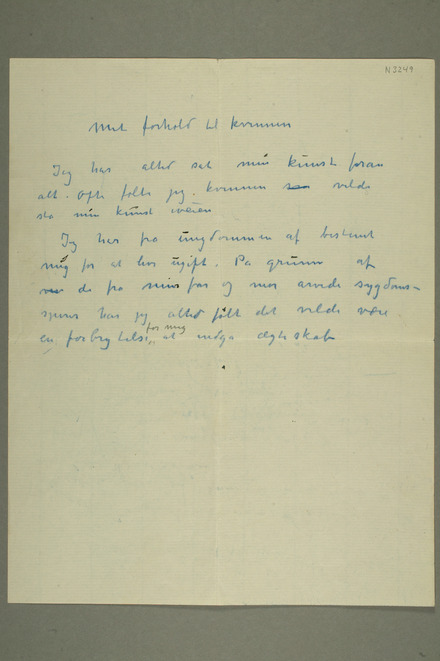 N 3249
Mit forhold til kvinnen
Jeg har altid sat min kunst foran
alt. Ofte følte jeg kvinnen vilde
stå min kunst iveien
Jeg har fra ungdommen af bestemt
mig for at leve ugift. På grunn af
de fra min far og mor arvede sygdoms-
spirer har jeg altid følt det vilde være
en forbrytelse for mig at indgå ægteskab